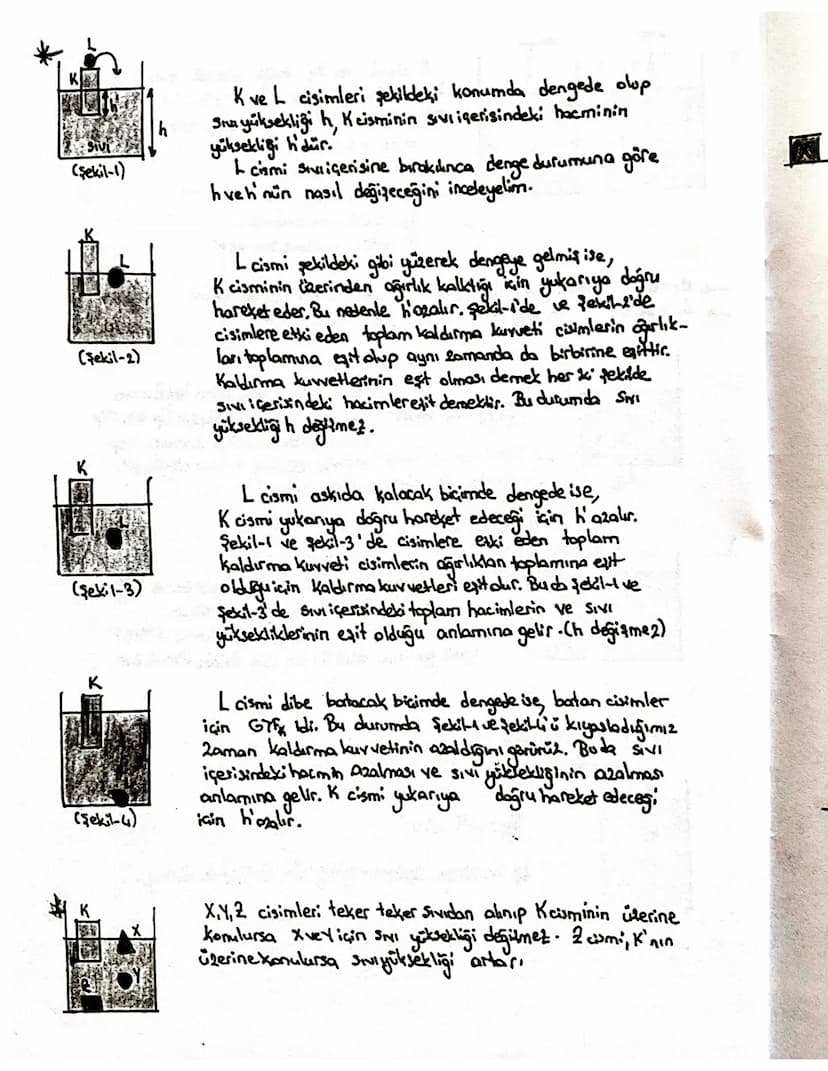 L
K
h'
h
SIVI
(Şekil-1)
K ve L cisimleri şekildeki konumda dengede olup
Sıvı yüksekliği h, K cisminin sıvı içerisindeki hacminin
yüksekliği h'dür.
L cismi sıvı içerisine bırakılınca denge durumuna göre
h ve h' nün nasıl değişeceğini inceleyelim.
K
L
(Şekil-2)
L cismi şekildeki gibi yüzerek dengeye gelmiş ise,
K cisminin üzerinden ağırlık kalktığı için yukarıya doğru
hareket eder. Bu nedenle h' azalır. Şekil-1'de ve Şekil-2'de
cisimlere etki eden toplam kaldırma kuvveti cisimlerin ağırlık-
ları toplamına eşit olup aynı zamanda da birbirine eşittir.
Kaldırma kuvvetlerinin eşit olması demek her iki şekilde
sıvı içerisindeki hacimler eşit demektir. Bu durumda Sıvı
yüksekliği h değişmez.
K
L
(Şekil-3)
L cismi askıda kalacak biçimde dengede ise,
K cismi yukarıya doğru hareket edeceği için h' azalır.
Şekil-1 ve Şekil-3' de cisimlere etki eden toplam
kaldırma kuvveti cisimlerin ağırlıkları toplamına eşit
olduğu için kaldırma kuvvetleri eşit olur. Bu da Şekil-1 ve
Şekil-3'de sıvı içerisindeki toplam hacimlerin ve sıvı
yüksekliklerinin eşit olduğu anlamına gelir. (h değişmez)
K
(Şekil-4)
L cismi dibe batacak biçimde dengede ise, batan cisimler
için G>Fk idi. Bu durumda Şekil-1 ve Şekil-4'ü kıyasladığımız
zaman kaldırma kuvvetinin azaldığını görürüz. Bu da sıvı
içerisindeki hacmin azalması ve sıvı yüksekliğinin azalması
anlamına gelir. K cismi yukarıya doğru hareket edeceği
için h' azalır.
K
X
Y
X, Y, Z cisimleri teker teker sıvıdan alınıp K cisminin üzerine
konulursa X ve Y için sıvı yüksekliği değişmez. Z cismi, K'nın
üzerine konulursa sıvı yüksekliği artar.